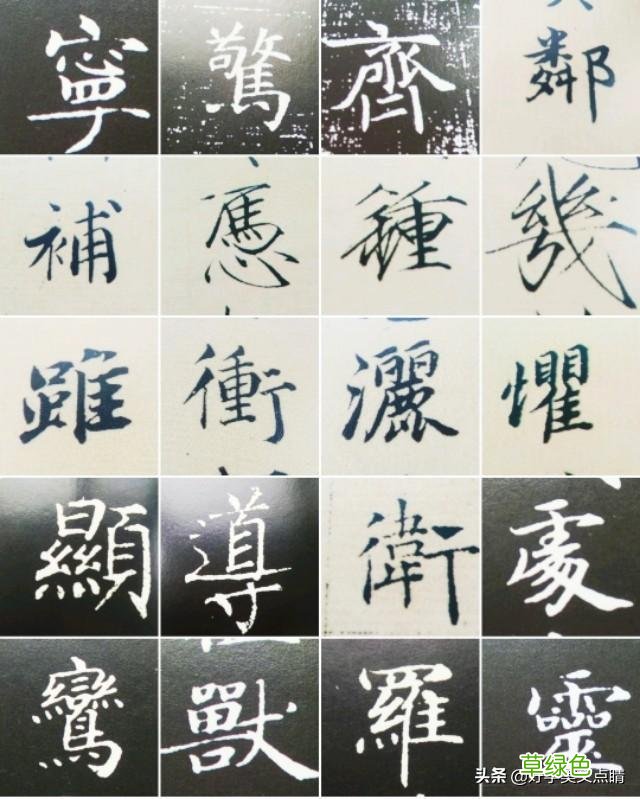 寧 驚 齊 鄰
補 憑 鍾 幾
雖 衝 灑 懼
顯 導 衛 處
鸞 獸 羅 靈
草绿色
头条 @点睛